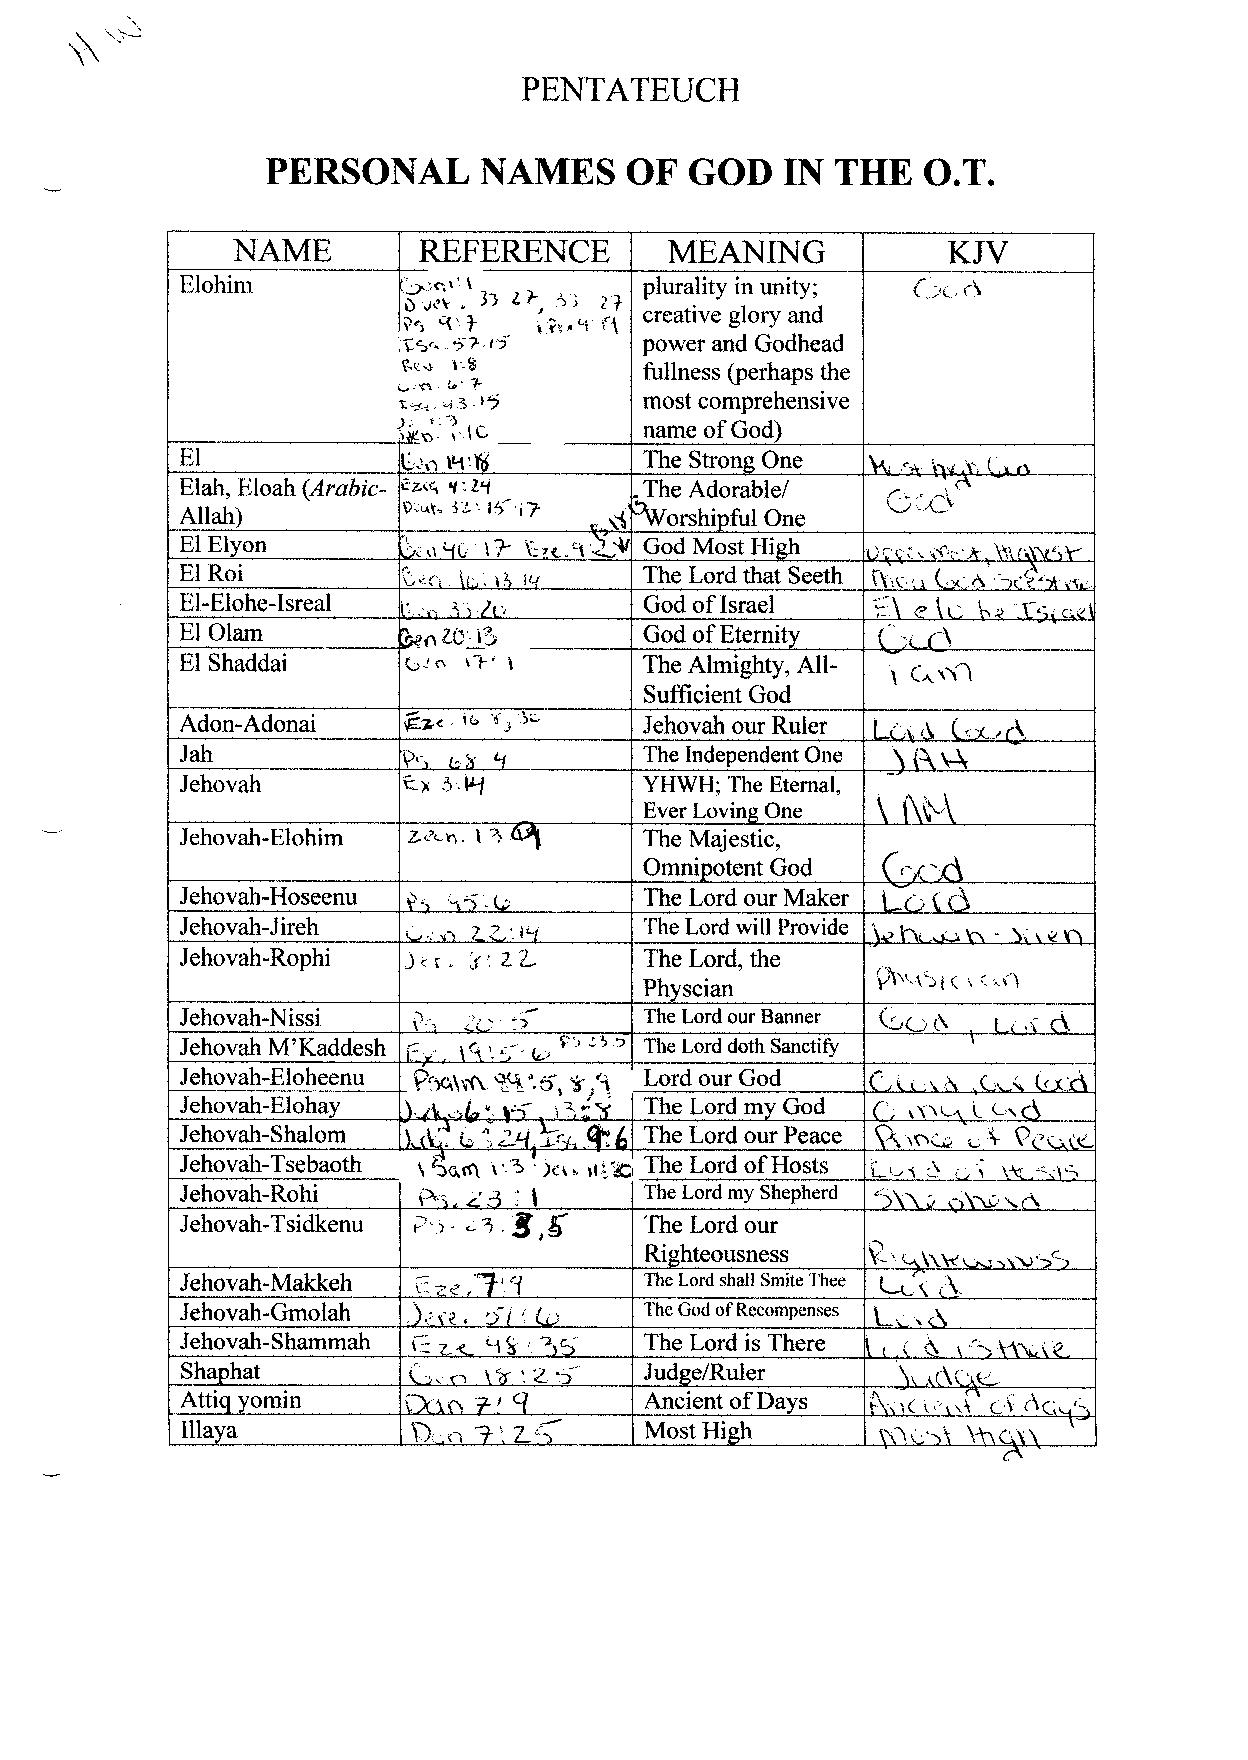 HW
PENTATEUCH
PERSONAL NAMES OF GOD IN THE O.T.
NAME REFERENCE MEANING KJV
Elohim plurality in unity; God
33 27, 33 27 creative glory and
Ps 9:7
Isa. 57:15 power and Godhead
Rev 1:8 fullness (perhaps the
43:15 most comprehensive
name of God)
El Gen 14:18 The Strong One
Elah, Eloah (Arabic- 4:24 The Adorable/ God
Allah) Deut. 32:15-17 Worshipful One
El Elyon Gen 40:17 Eze. 9:2 God Most High uppermost, highest
El Roi Gen. 16:13 14 The Lord that Seeth Thou God seest me
El-Elohe-Isreal Gen 33:20 God of Israel El elo he Israel
El Olam Gen 20:13 God of Eternity God
El Shaddai Gen 17:1 The Almighty, All- I am
Sufficient God
Adon-Adonai Eze. 16 8, 30 Jehovah our Ruler Lord God
Jah Ps 68 4 The Independent One JAH
Jehovah Ex 3:14 YHWH; The Eternal, I AM
Ever Loving One
Jehovah-Elohim Zech. 13 9 The Majestic,
Omnipotent God God
Jehovah-Hoseenu Ps 95:6 The Lord our Maker Lord
Jehovah-Jireh Gen 22:14 The Lord will Provide Jehovah-Jireh
Jehovah-Rophi Jer. 8:22 The Lord, the
Physcian Physician
Jehovah-Nissi Ps 20:5 The Lord our Banner God, Lord
Jehovah M'Kaddesh Ex. 19:5-6 Ps 23:5 The Lord doth Sanctify
Jehovah-Eloheenu Psalm 99:5, 8, 9 Lord our God
Jehovah-Elohay Judg 6:15, 13:8 The Lord my God O my Lord
Jehovah-Shalom Judg 6:24, Isa. 9:6 The Lord our Peace Prince of Peace
Jehovah-Tsebaoth 1 Sam 1:3 Jer. 11:20 The Lord of Hosts Lord of Hosts
Jehovah-Rohi Ps. 23:1 The Lord my Shepherd Shepherd
Jehovah-Tsidkenu Ps. 23. 3, 5 The Lord our
Righteousness Righteousness
Jehovah-Makkeh Eze. 7:9 The Lord shall Smite Thee Lord
Jehovah-Gmolah Jere. 51:6 The God of Recompenses Lord
Jehovah-Shammah Eze 48:35 The Lord is There Lord is there
Shaphat Gen 18:25 Judge/Ruler Judge
Attiq yomin Dan 7:9 Ancient of Days Ancient of days
Illaya Dan 7:25 Most High most High